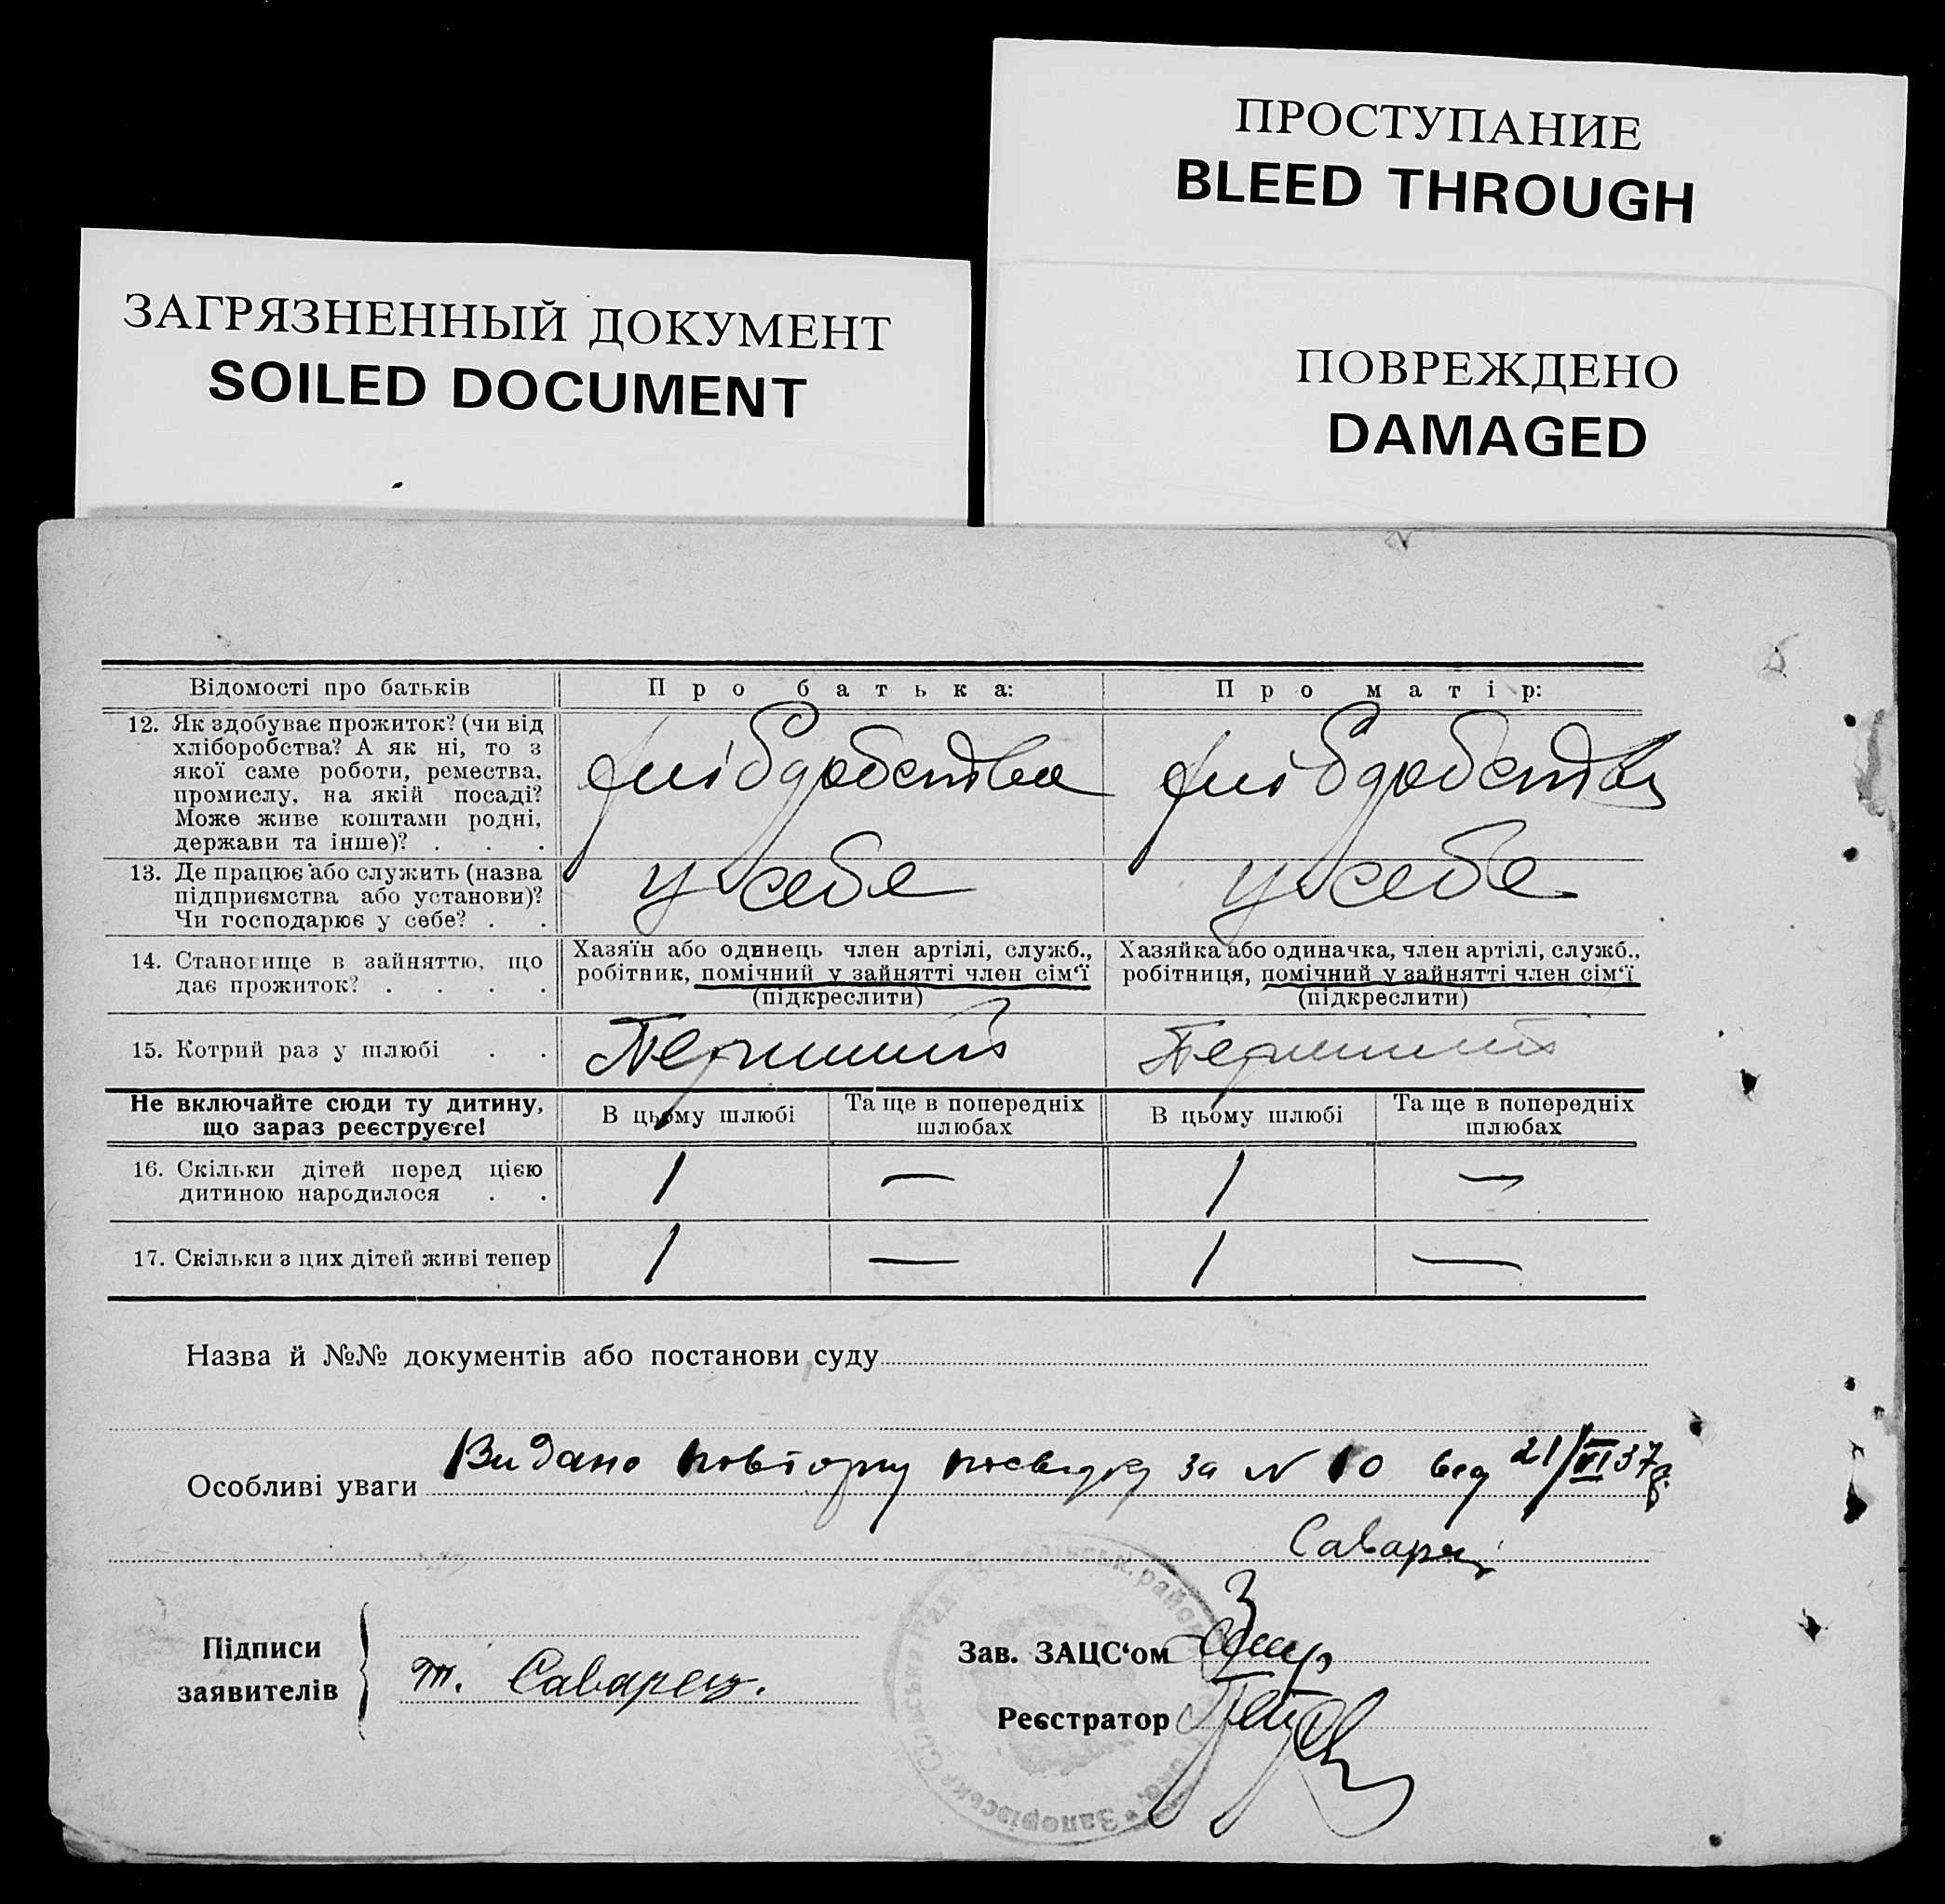 ПРОСТУПАНИЕ
BLEED THROUGH
ЗАГРЯЗНЕННЫЙ ДОКУМЕНТ
SOILED DOCUMENT
ПОВРЕЖДЕНО
DAMAGED
Відомості про батьків
Про батька:
Про матір:
12. Як здобуває прожиток? (чи від
хліборобства? А як ні, то з
якої саме роботи, ремества,
промислу, на якій посаді?
Може живе коштами родні,
держави та інше)? . . .
13. Де працює або служить (назва
підприємства або установи)?
Чи господарює у себе? . .
у себе
у себе
14. Становище в зайняттю, що
дає прожиток? . . . .
Хазяїн або одинець член артілі, служб.,
робітник, помічний у зайнятті член сім'ї
(підкреслити)
Хазяйка або одиначка, член артілі, служб.,
робітниця, помічний у зайнятті член сім'ї
(підкреслити)
15. Котрий раз у шлюбі . .
Перший
Перший
Не включайте сюди ту дитину,
що зараз реєструєте!
В цьому шлюбі
Та ще в попередніх
шлюбах
В цьому шлюбі
Та ще в попередніх
шлюбах
16. Скільки дітей перед цією
дитиною народилося . .
1 — 1 —
17. Скільки з цих дітей живі тепер
1 — 1 —
Назва й №№ документів або постанови суду
Особливі уваги Видано повторну посвідку за N 10 від 21/VI 37р.
Підписи
заявителів
Т. Саварец.
Зав. ЗАЦС'ом
Реєстратор